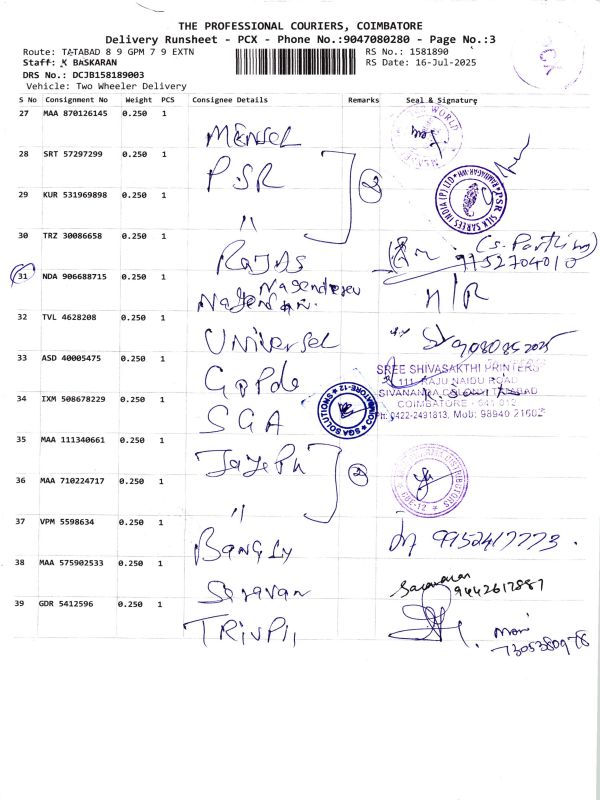 THE PROFESSIONAL COURIERS, COIMBATORE
Delivery Runsheet - PCX - Phone No.:9047080280 - Page No.:3
Route: TATABAD 8 9 GPM 7 9 EXTN
RS No.: 1581890
Staff: K BASKARAN
RS Date: 16-Jul-2025
DRS No.: DCJB158189003
Vehicle: Two Wheeler Delivery
S No Consignment No Weight PCS Consignee Details Remarks Seal & Signature
27 MAA 870126145 0.250 1
28 SRT 57297299 0.250 1 PSR 2
PSR SILK SAREES INDIA (P) LTD
29 KUR 531969898 0.250 1 "
30 TRZ 30086658 0.250 1 Rajas
9152704010
31 NDA 906688715 0.250 1 N/R
32 TVL 4628208 0.250 1 Universel
33 ASD 40005475 0.250 1
SREE SHIVASAKTHI PRINTERS
111, RAJU NAIDU ROAD
SIVANANDA COLONY, TATABAD
COIMBATORE - 641 012
Ph: 0422-2491813, Mob: 98940 21602
34 IXM 508678229 0.250 1 SGA
SGA SOLUTIONS COIMBATORE-12
35 MAA 111340661 0.250 1 2
36 MAA 710224717 0.250 1 "
37 VPM 5598634 0.250 1 9952417773.
38 MAA 575902533 0.250 1 Saravan
Saravanan
9442617887
39 GDR 5412596 0.250 1
Mani
7305380978